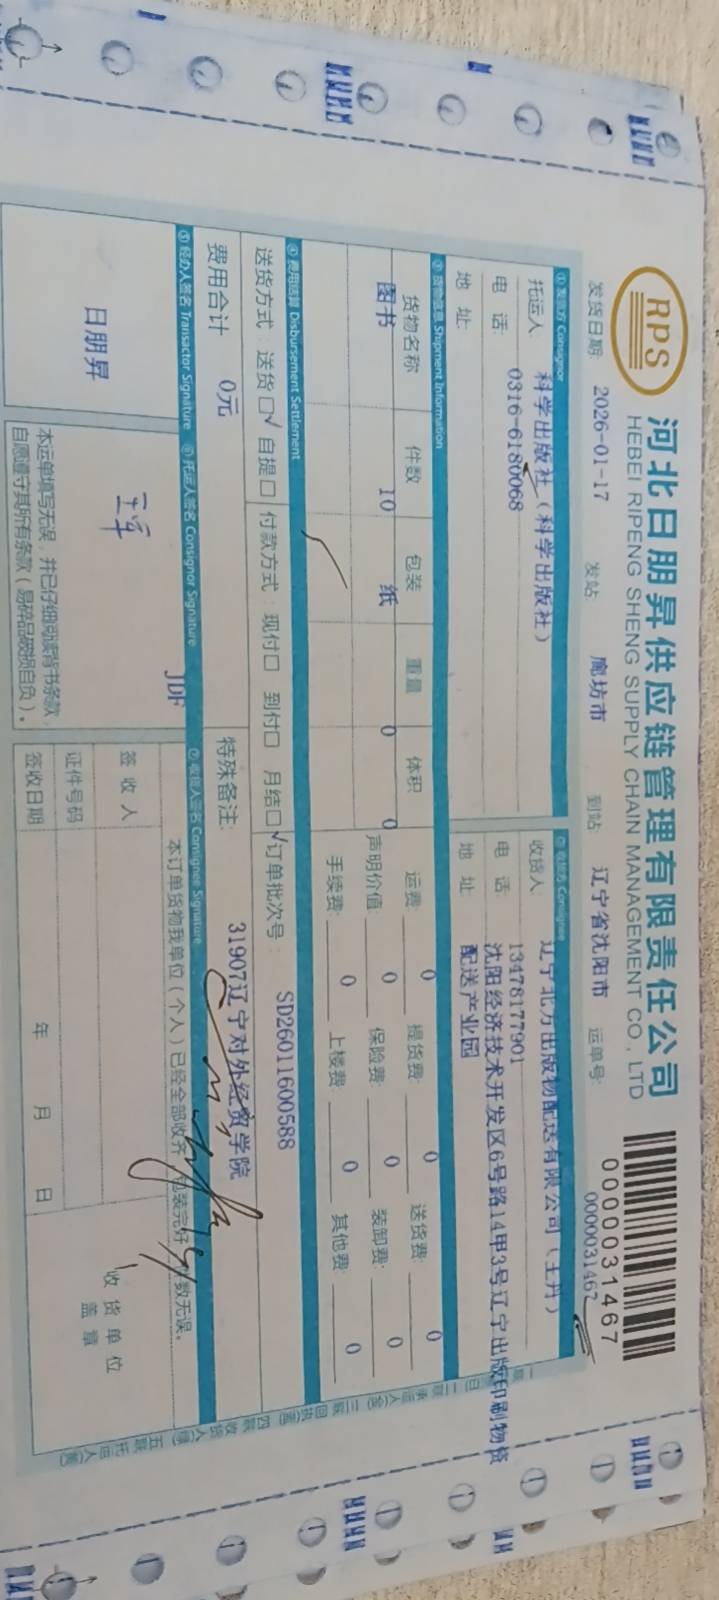 RPS
河北日朋昇供应链管理有限责任公司
HEBEI RIPENG SHENG SUPPLY CHAIN MANAGEMENT CO., LTD
0000031467
发货日期: 2026-01-17 发站: 廊坊市 到站: 辽宁省沈阳市 运单号: 0000031467
① 发货方 Consignor
托运人: 科学出版社(科学出版社)
电 话: 0316-6180068
地 址:
② 收货方 Consignee
收货人: 辽宁北方出版物配送有限公司(王丹)
电 话: 13478177901
地 址: 沈阳经济技术开发区6号路14甲3号辽宁出版印刷物资
配送产业园
③ 货物信息 Shipment Information
货物名称 件数 包装 重量 体积
图书 10 纸 0 0
运费: 0 提货费: 0 送货费: 0
声明价值: 0 保险费: 0 装卸费: 0
手续费: 0 上楼费: 0 其他费: 0
④ 费用结算 Disbursement Settlement
送货方式: 送货□√ 自提□ 付款方式: 现付□ 到付□ 月结□√ 订单批次号: SD26011600588
费用合计 0元
特殊备注: 31907辽宁对外经贸学院
⑤ 经办人签名 Transactor Signature
日朋昇
⑥ 托运人签名 Consignor Signature
JDF
本运单填写无误,并已仔细阅读背书条款,
自愿遵守其所有条款(易碎品破损自负)。
⑦ 收货人签名 Consignee Signature
本订单货物我单位(个人)已经全部收齐,包装完好,件数无误。
签收人
证件号码
签收日期 年 月 日
收货单位
盖章